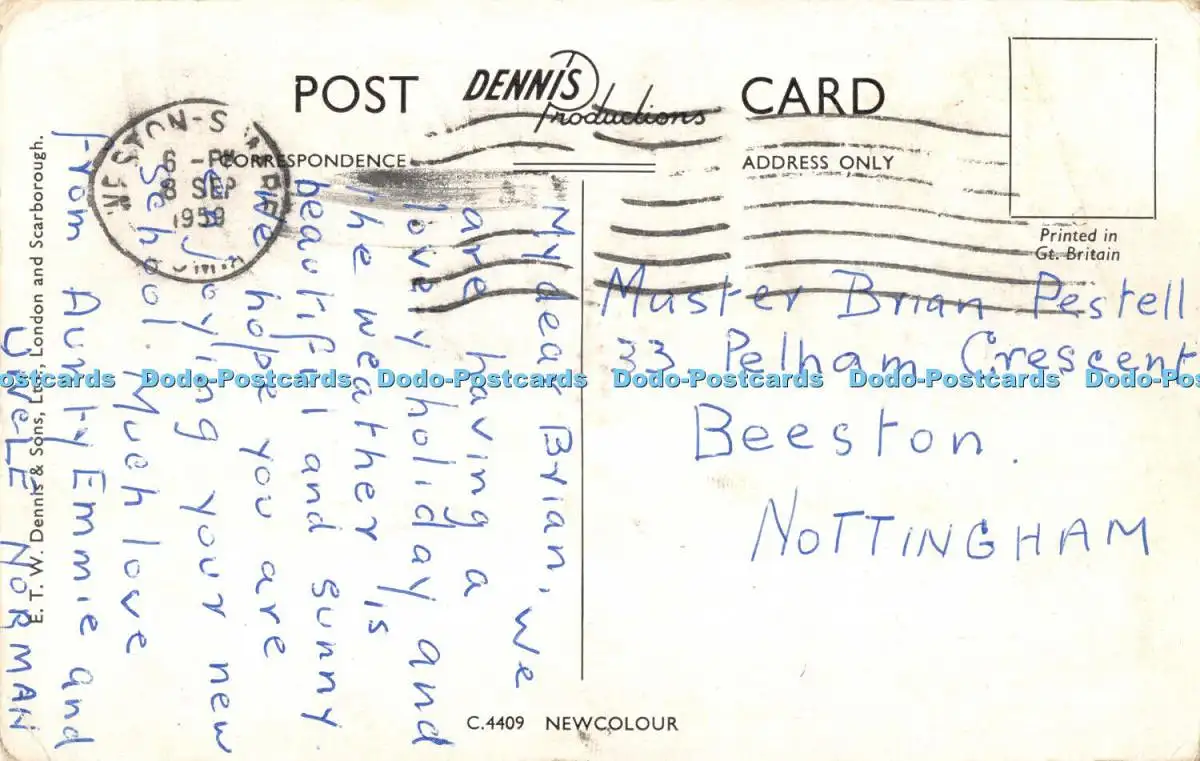 POST DENNIS Productions CARD
CORRESPONDENCE
ADDRESS ONLY
Printed in
Gt. Britain
6 - PM
8 SEP
1959
My dear Brian, we
are having a
lovely holiday and
the weather is
beautiful and sunny
we hope you are
enjoying your new
School. Much love
from Aunty Emmie and
UNCLE NORMAN
Master Brian Pestell
33 Pelham Crescent
Beeston.
NOTTINGHAM
E. T. W. Dennis & Sons, Ltd., London and Scarborough.
C.4409 NEWCOLOUR
Dodo-Postcards Dodo-Postcards Dodo-Postcards Dodo-Postcards Dodo-Postcards